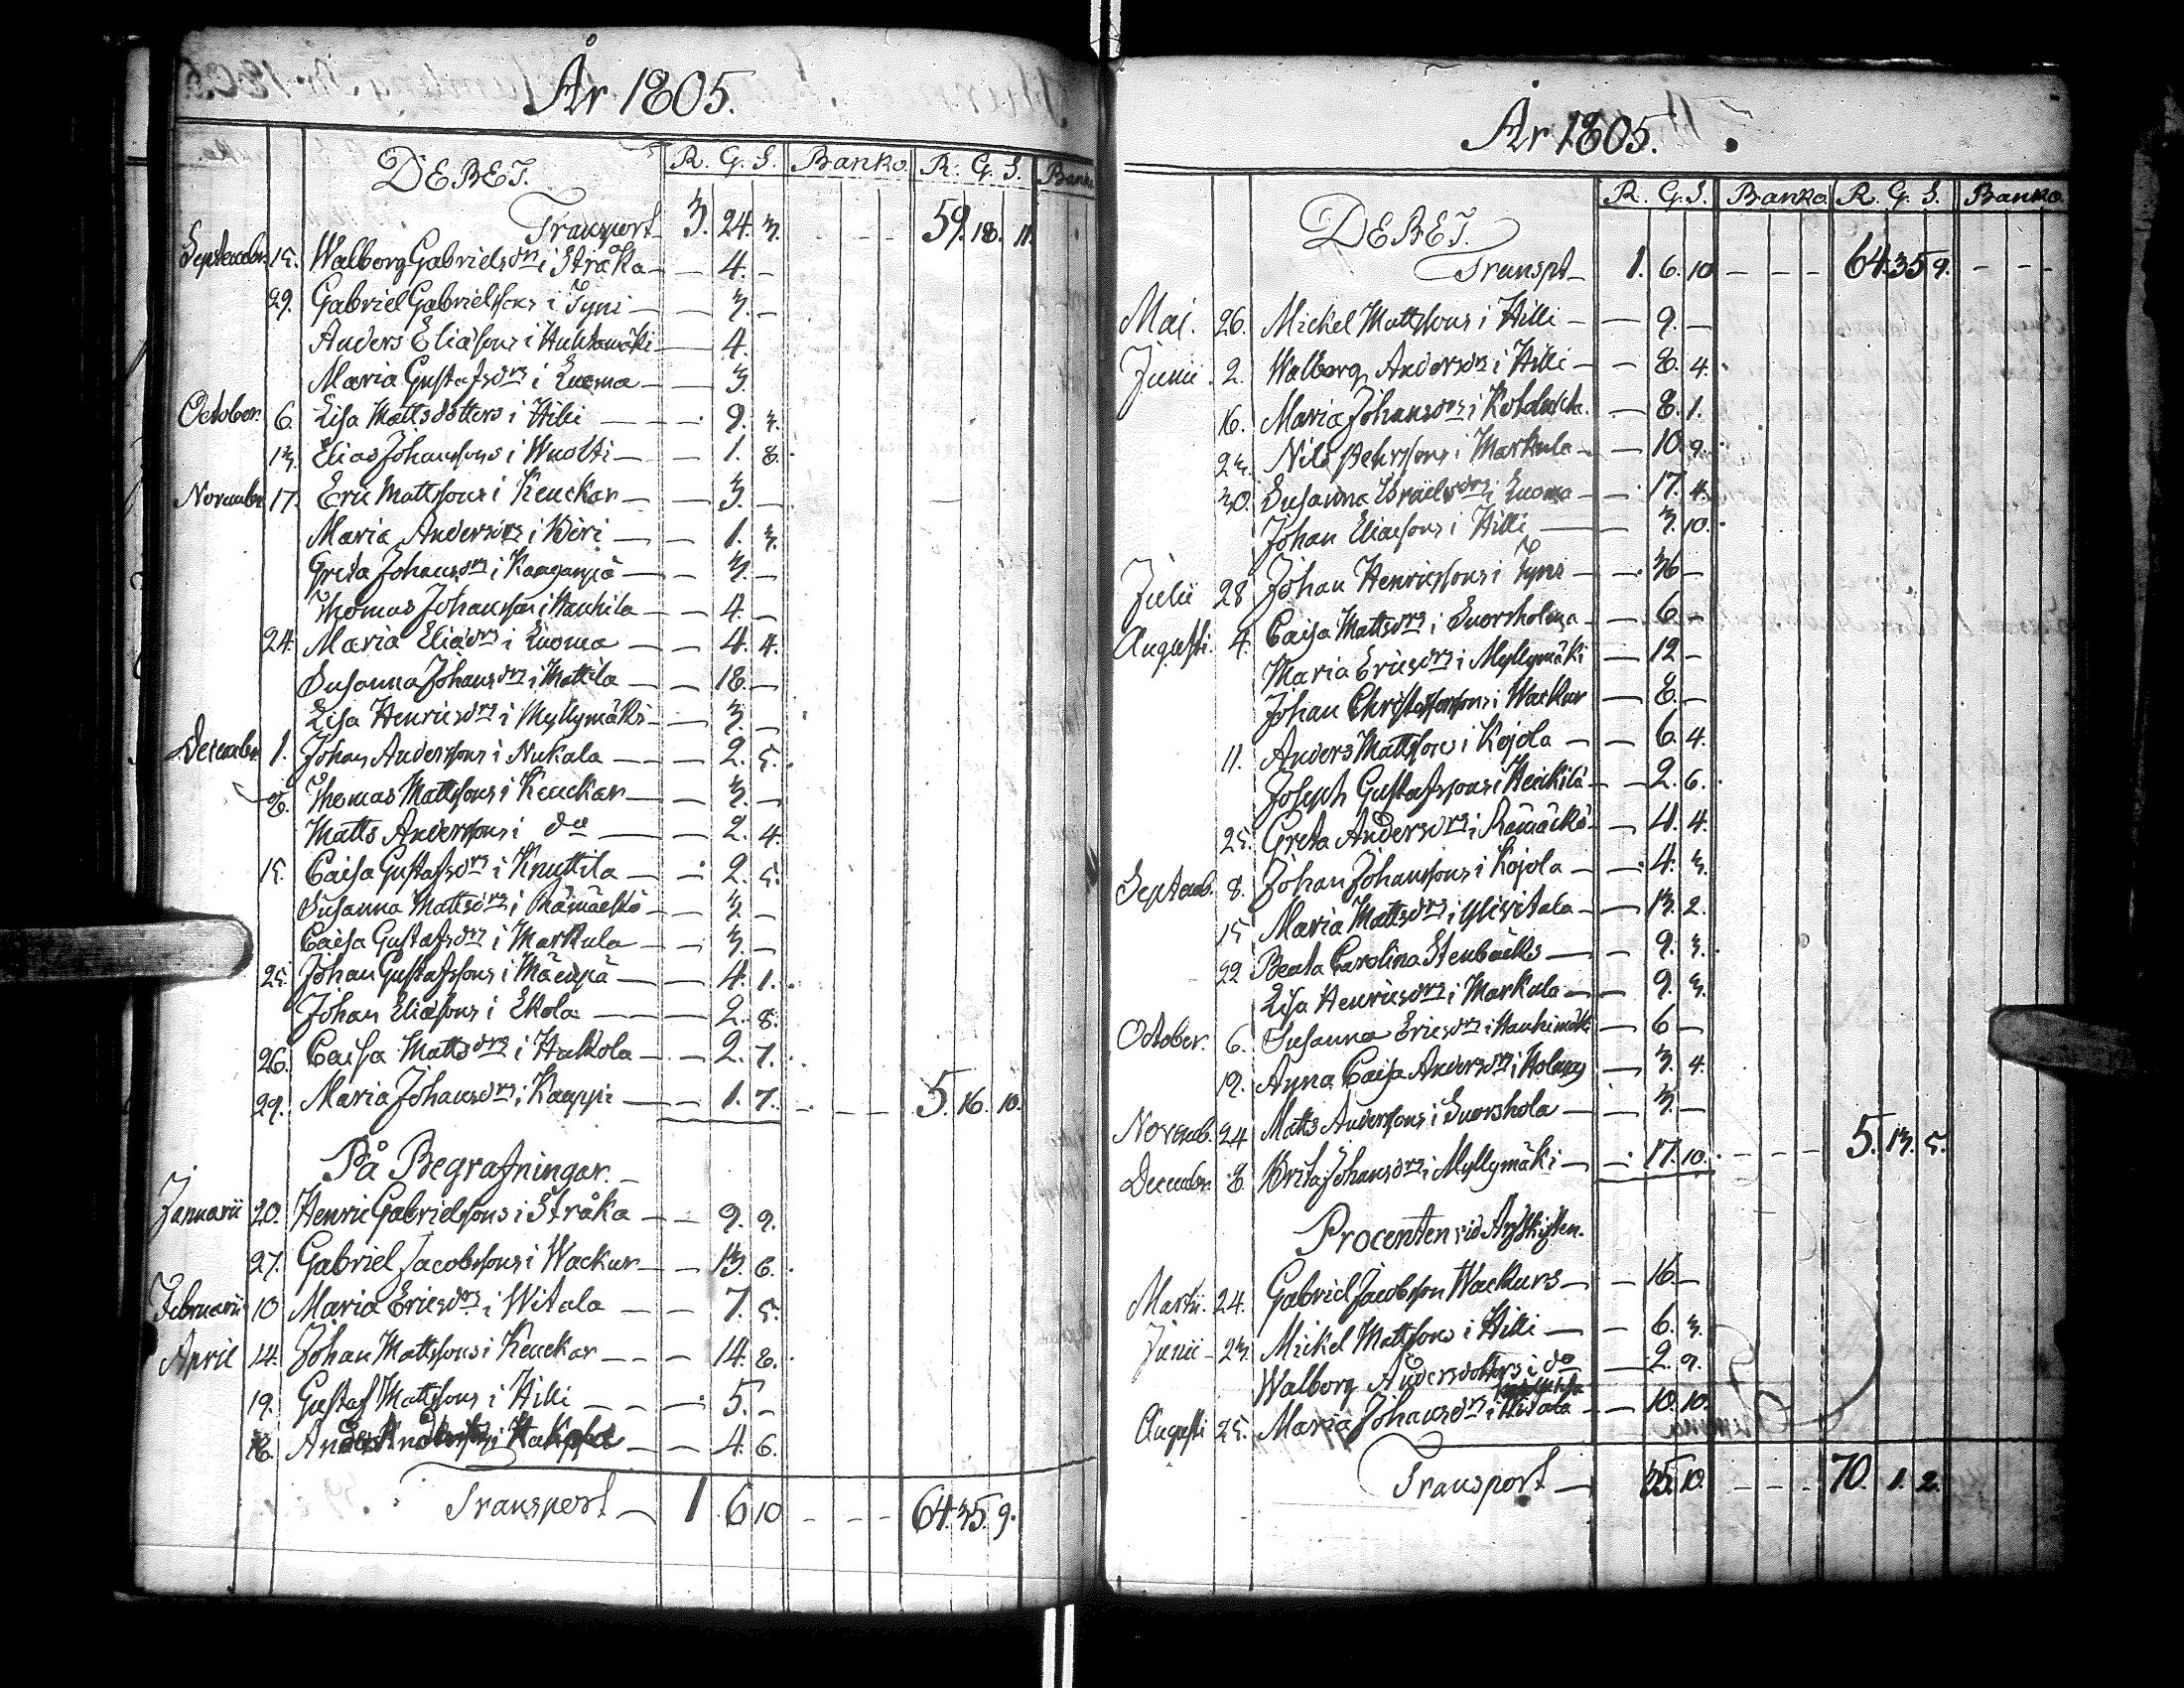 År 1805.
DEBET. R. G. S. Banko. R. G. S. Banko
Transport 3. 24. 3. - - - 59. 18. 11.
September 15. Walborg Gabrielsdrs i Stråka — — 4. —
29. Gabriel Gabrielssons i Tyni — — 3. —
Anders Eliæsons i Huhtamäki — 4.
Maria Gustafsdrs i Luoma — — 3.
October. 6. Lisa Mattsdotters i Hilli — — 9. 3.
13. Elias Johanssons i Wuolti — — 1. 8.
Novembr 17. Eric Mattssons i Keuckar — — 3. —
Maria Andersdrs i Böri — — 1. 3.
Greta Johansdrs i Kaaganpä — — 3. —
Thomas Johanssons i Hanhila — — 4. —
24. Maria Eliædrs i Luoma — — 4. 4.
Susanna Johansdrs i Mattila — — 18. —
Lisa Henricsdrs i Myllymäki — — 3. —
Decembr. 1. Johan Anderssons i Nukala — — 2. 5.
8. Thomas Mattssons i Keuckar — — 3. —
Matts Anderssons i do — — 2. 4.
15. Caisa Gustafsdrs i Knuttila — — 2. 5.
Susanna Mattsdrs i Rämäckö — — 3. —
Caisa Gustafsdrs i Markula — — 3. —
25. Johan Gustafssons i Mäenpä — — 4. 1.
Johan Eliæsons i Ekola — — 2. 8.
26. Caisa Mattsdrs i Hakola — — 2. 7.
29. Maria Johansdrs i Kauppi — — 1. 7. - - - 5. 16. 10.
På Begrafningar. —
Januarii 20. Henric Gabrielssons i Stråka — — 9. 9.
27. Gabriel Jacobssons i Wackur — — 13. 6.
Februarii 10 Maria Ericsdrs i Witala — — 7. 5.
April 14. Johan Mattssons i Keuckar — — 14. 8.
19. Gustaf Mattssons i Hilli — — 5. —
i — — 4. 6.
Transport — 1 6 10 - - - 64. 35. 9.
År 1805.
DEBET. R. G. S. Banko R. G. S. Banko
Transpt — 1. 6. 10 - - - 64. 35 9. - - -
Maj. 26. Mickel Mattssons i Hilli — — 9. —
Junii. 2. Walborg Andersdrs i Hilli — — 8. 4.
16. Maria Johansdrs i — 8. 1.
23. Nils Pehrssons i Markula — — 10. 9.
30. Susanna Israelsdrs i Luoma — — 17. 4.
Johan Eliæsons i Hilli — — 3. 10.
Julii 28 Johan Henricssons i Tyni — — 36 —
Augusti. 4. Caisa Mattsdrs i — — 6. —
Maria Ericsdrs i Myllymäki — 12 —
Johan Christofferssons i Wackur — 8. —
11. Anders Mattssons i Kojola — — 6. 4.
Joseph Gustafssons i Heickilä — — 2. 6.
25. Greta Andersdrs i Rämäckö — — 4. 4.
Septemb. 8. Johan Johanssons i Kojola — — 4. 3.
15 Maria Mattsdrs i Yliwitala — — 13. 2.
22 Beata Carolina Stenbäcks — — 9. 3.
Lisa Henricsdrs i Markula — — 9. 3.
October. 6. Susanna Ericsdrs i Hanhimäki — 6 —
19. Anna Caisa Andersdrs i Holmen — 3. 4.
Novemb. 24 Matts Anderssons i Suorshola — — 3. —
Decembr. 8. Brita Johansdrs i Myllymäki — — 17. 10. - - - 5. 13. 5.
Procenten vid
Martii. 24. Gabriel Jacobsson Wackurs — — 16. —
Junii — 23. Mickel Mattssons i Hilli — — 6. 3.
Walborg Andersdotters i do — 2. 9.
Augusti 25. Maria Johansdrs i Witala — — 10. 10.
Transport — 35. 10. - - - 70. 1. 2.